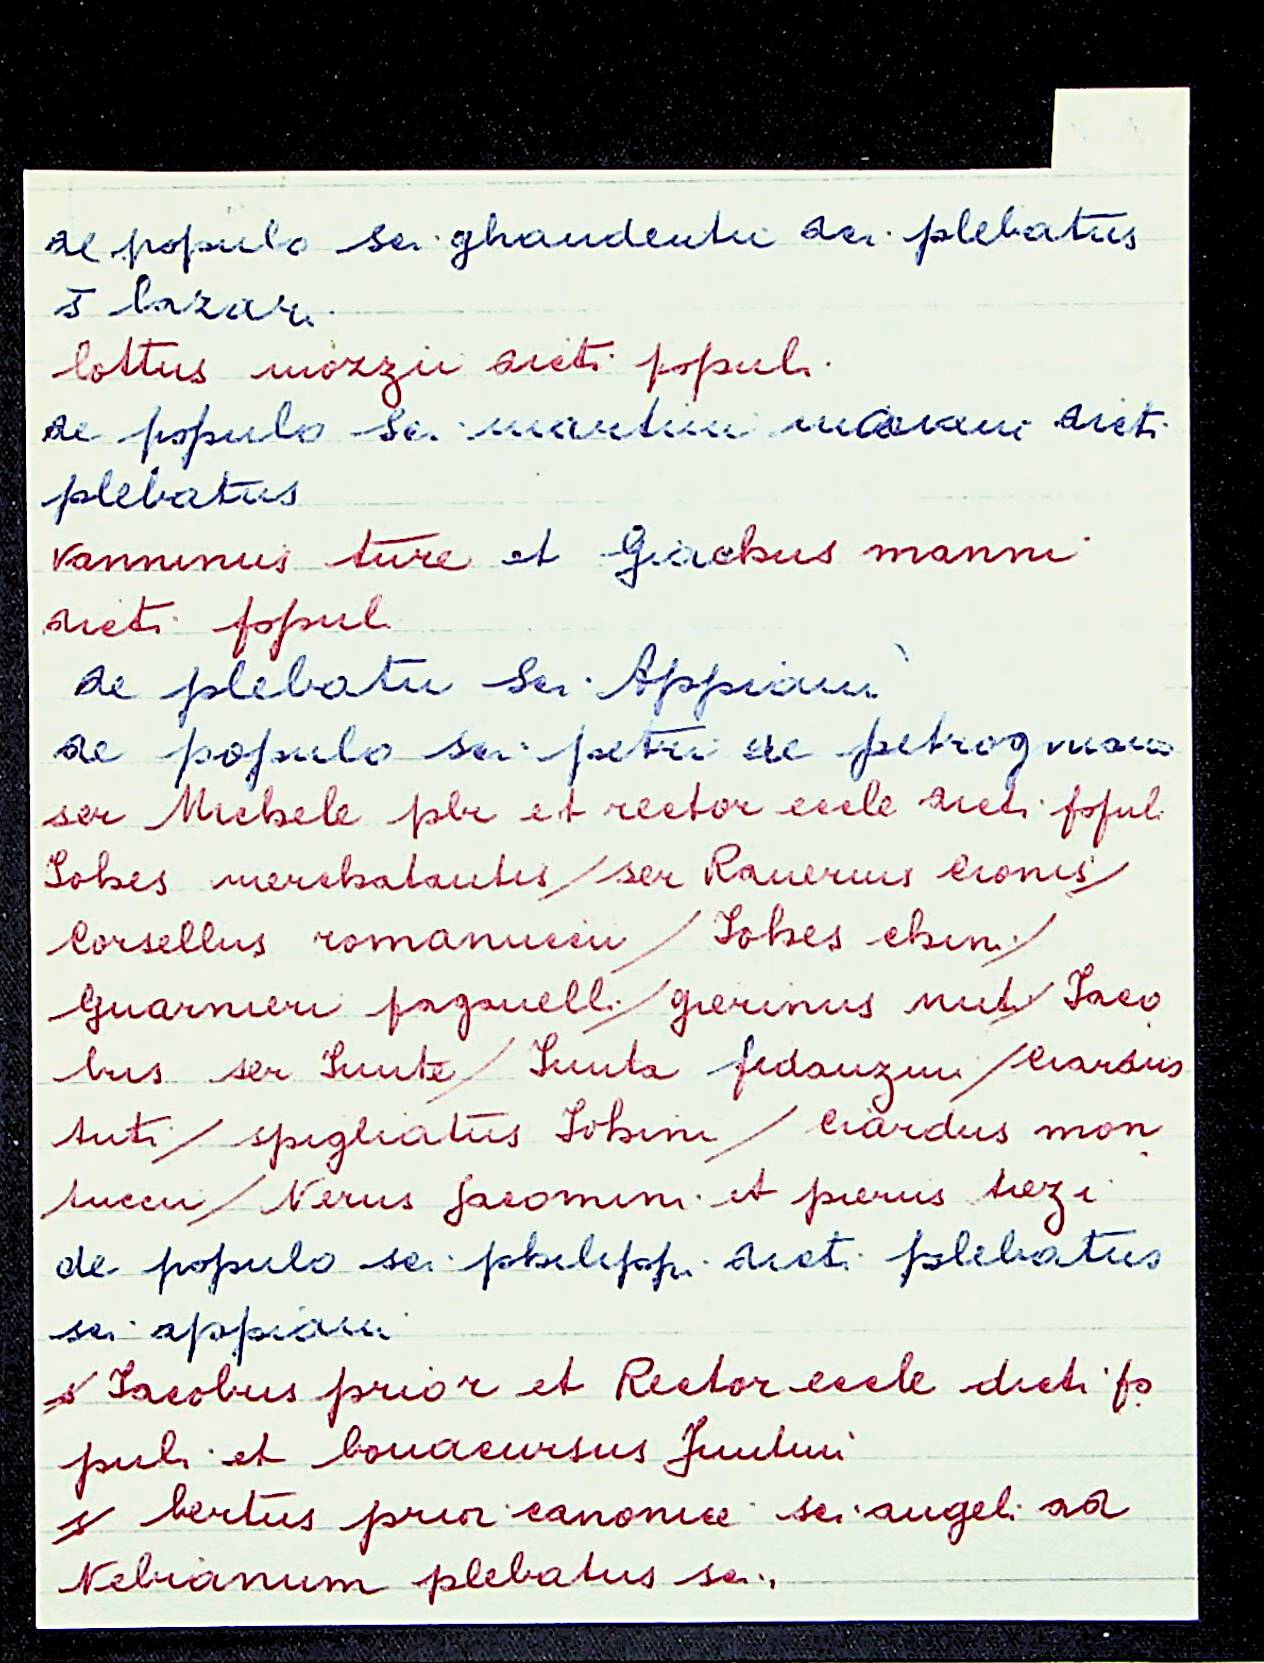 de populo sci. ghaudentii dci. plebatus
s̄ lazar.
lottus mozzii dicti popul.
de populo sci. martini maiani dicti
plebatus
vanninus ture et Giachus manni
dicti popul.
de plebatu sci. Appiani
de populo sci. petri de petrognano
ser Michele pbr et rector eccle dicti popul.
Johes merchatantis / ser Ranerius Cionis /
Corsellus romanuccii / Johes chini /
Guarnieri paganell. / gierinus nuti / Jaco
bus ser Junte / Junta fidanzini / Ciardus
tuti / spigliatus Johini / Ciardus mon
tuccii / Nerus Jacomini et pierus tiezi
de populo sci. philipp. dicti plebatus
sci. appiani
s/ Jacobus prior et Rector eccle dicti po
puli et bonacursus Juntini
s/ bertus prior canonice sci. angeli ad
Nebianum plebatus sci.,